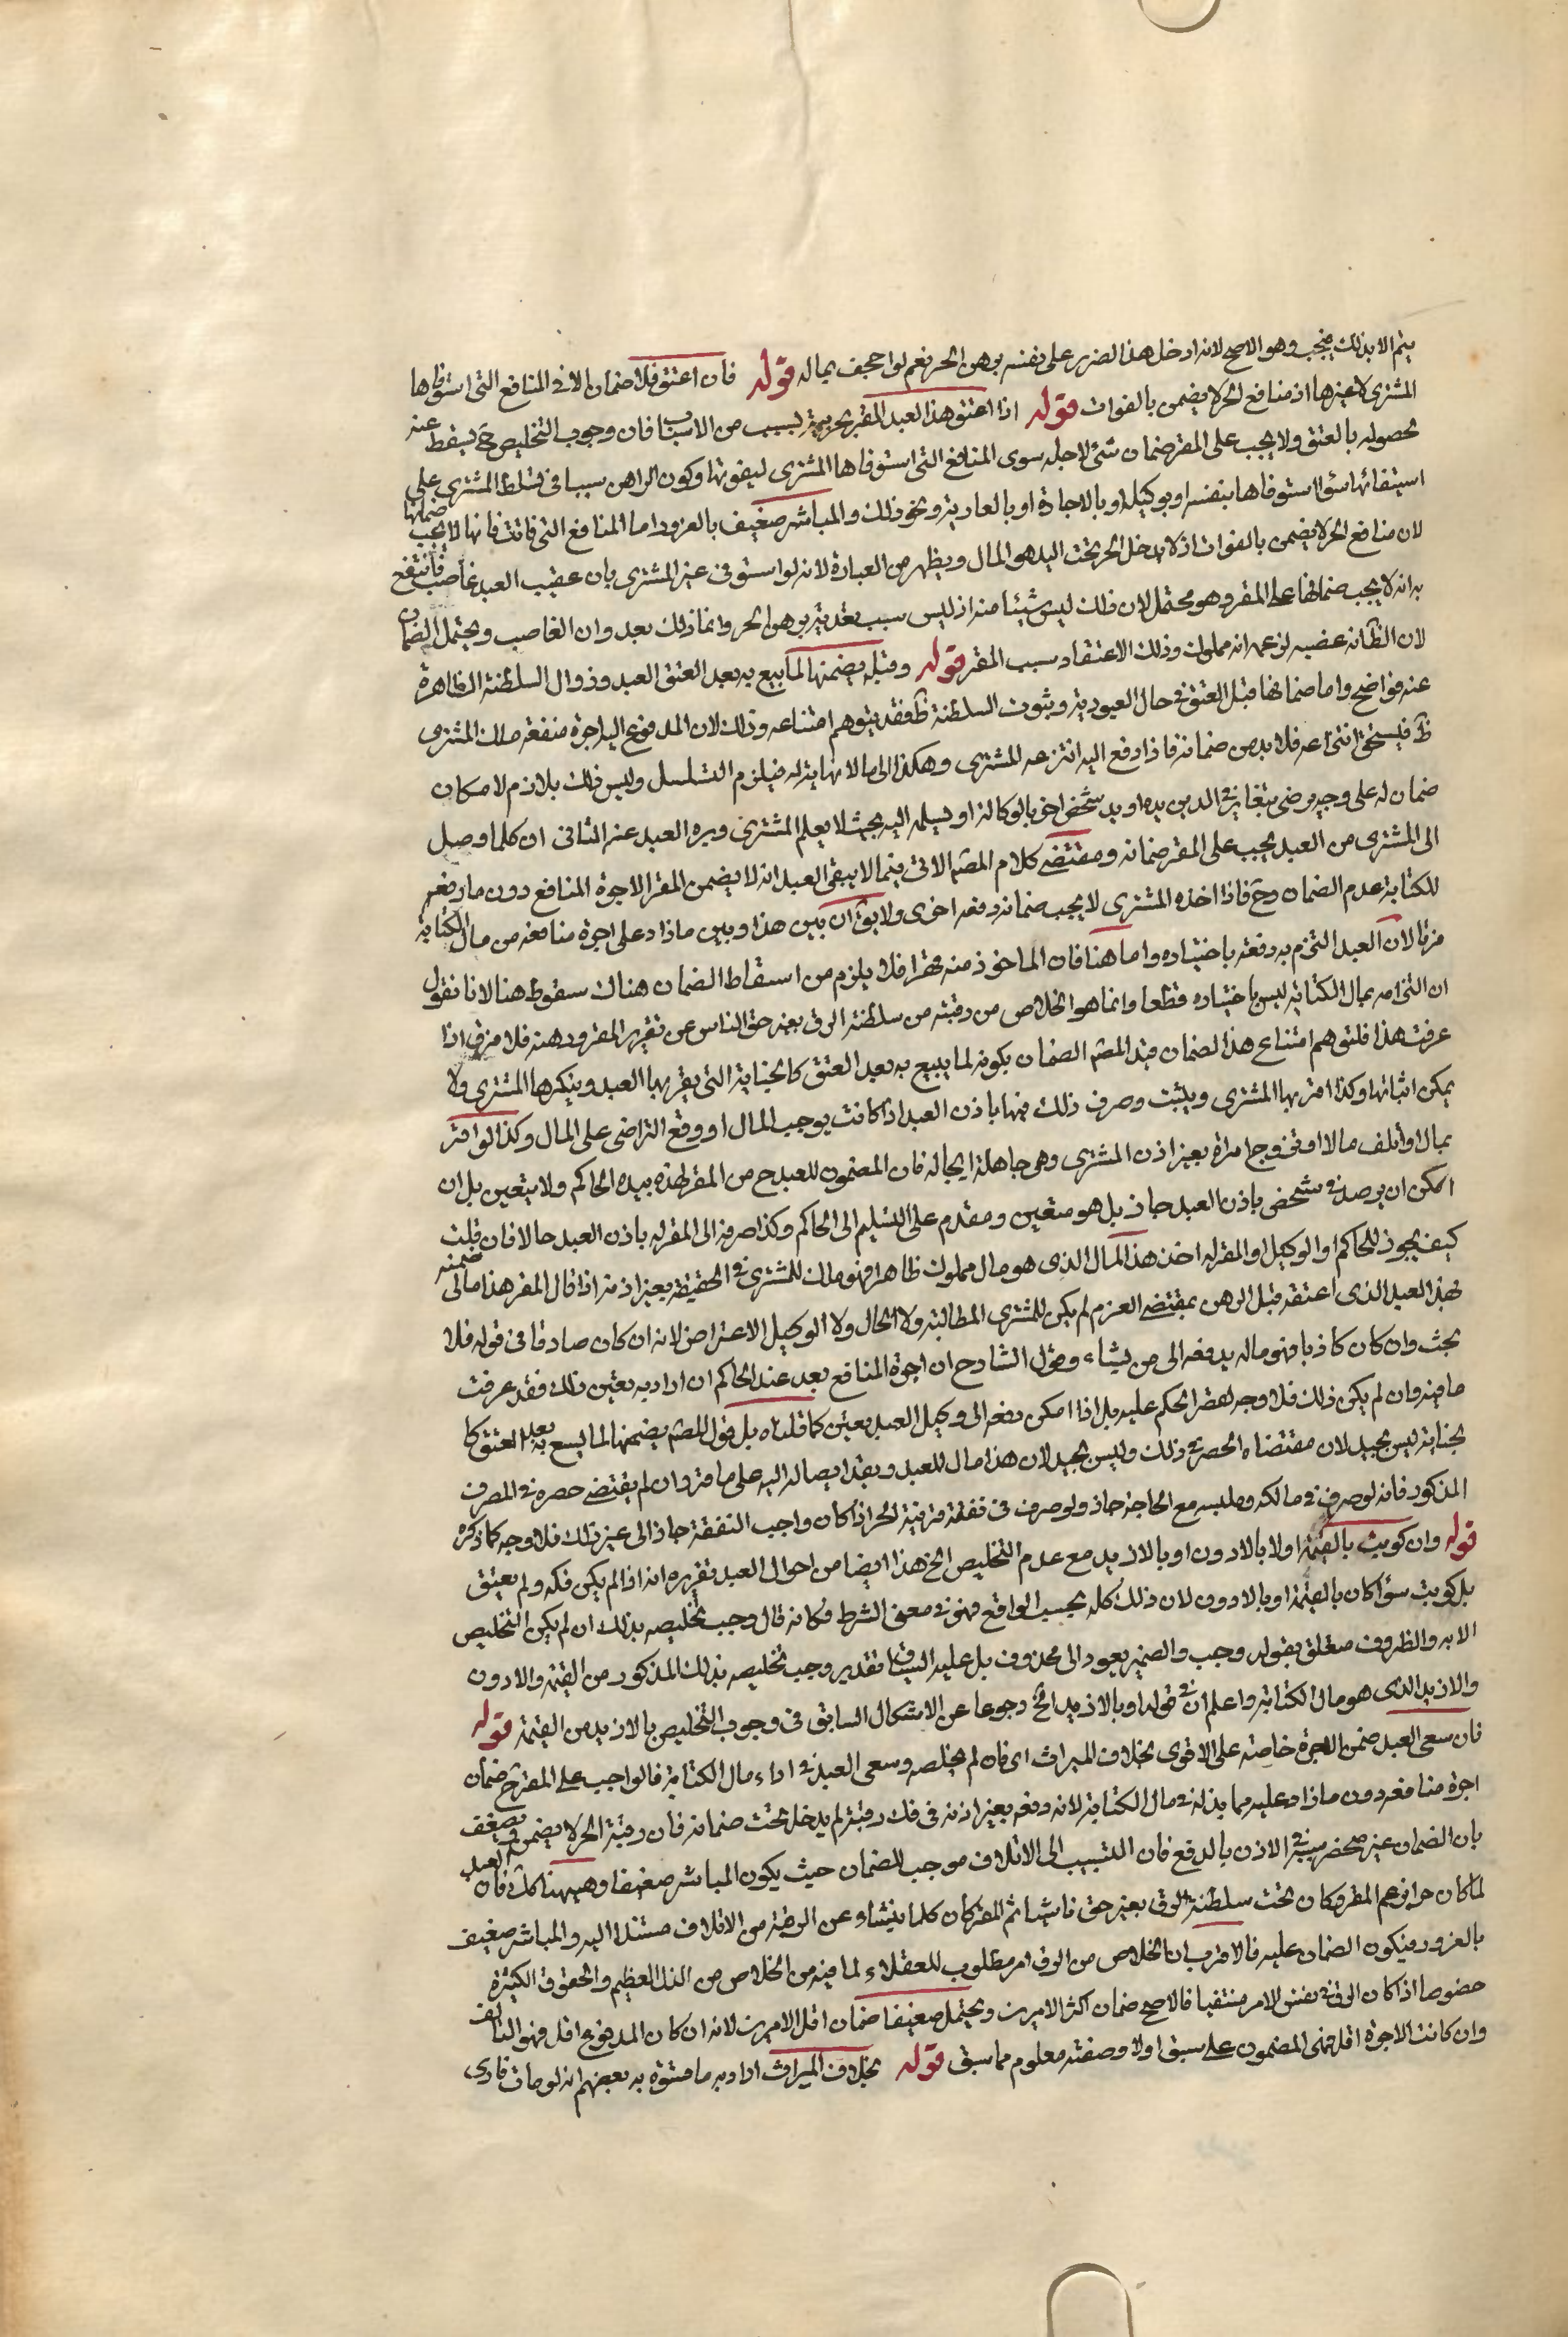 يتم الا بذلك فيجب وهو الاصح لانه ادخل هذا الضرر على نفسه برهن الحر نعم لو احجف بماله قوله فان اعتق فلا ضمان الا في المنافع التي استوفاها
المشتري لا غيرها اذ منافع الحر لا يضمن بالفوات قوله اذا اعتق هذا العبد المقر بحريته بسبب من الاسباب فان وجوب التخليص ح يسقط عنه
لحصوله بالعتق ولا يجب على المقر ضمان شئ لاجله سوى المنافع التي استوفاها المشتري ليفوتها وكون الراهن سببا في تسلط المشتري على
استيفائها سواء استوفاها بنفسه او بوكيله او بالاجارة او بالعارية ونحو ذلك والمباشر ضعيف بالغرور اما المنافع التي فاتت فانها لا يجب ضمانها
لان منافع الحر لا يضمن بالفوات اذ لا يدخل الحر تحت اليد هو المال ويظهر من العبارة لانه لو استوفى غير المشتري بان غصب العبد غاصب فانتفع
به انه لا يجب ضمانها على المقر وهو محتمل لان ذلك ليس شيئا منه اذ ليس سبب تعديته برهن الحر وانما ذلك بعدوان الغاصب ويحتمل الضمان
لان الظ انه غصبه لزعمه انه مملوك وذلك الاعتقاد بسبب المقر قوله وقبله يضمنها لما يبيع به بعد العتق العبد وزوال السلطنة الظاهرة
عنه فواضح واما ضمانها قبل العتق في حال العبودية وثبوت السلطنة ظ فقد يتوهم امتناعه وذلك لان المدفوع اليه اجرة منفعة ملك المشتري
ظ فيستحق انتزاعه فلا بد من ضمانه فاذا دفع اليه انتزعه المشتري وهكذا الى ما لا نهاية له فيلزم التسلسل وليس ذلك بلازم لامكان
ضمان له على وجه مرضي بتغاير في الدين بيده او يد شخص اخر بالوكالة او يسلمه اليه بحيث لا يعلم المشتري ويره العبد عنه الثاني ان كلما وصل
الى المشتري من العبد يجب على المقر ضمانه ومقتضى كلام المصنف الاتي فيما لا يبقى العبد انه لا يضمن المقر الا اجرة المنافع دون ما دفعه
للكتابة عدم الضمان وح فاذا اخذه المشتري لا يجب ضمانه دفعة اخرى ولا يق ان بين هذا وبين ما زاد على اجرة منافعه من مال الكتابة
فرقا لان العبد التزم به دفعه باختياره واما هنا فان الماخوذ منه قهرا فلا يلزم من اسقاط الضمان هناك سقوط هنا لانا نقول
ان التزامه بمال الكتابة ليس باختياره قطعا وانما هو الخلاص من رقبته من سلطنة الرق بغير حق الناس عن تقرير المقر ورهنه فلا فرق اذا
عرفت هذا فلتوهم امتناع هذا الضمان قيد المصنف الضمان بكونه لما يبيع به بعد العتق كالجناية التي يقر بها العبد وينكرها المشتري ولا
يمكن اثباتها وكذا اقر بها المشتري ويثبت وصرف ذلك فيها باذن العبد اذا كانت يوجب المال او وقع التراضي على المال وكذا لو اقر
بمال او اتلف مالا او تزوج امراة بغير اذن المشتري وهي جاهلة ايحاله فان المضمون للعبد ح من المقر لهذه بيده الحاكم ولا يتعين بل ان
امكن ان يرصد في شخص باذن العبد جاز بل هو متعين ومقدم على التسليم الى الحاكم وكذا صرفه الى المقر له باذن العبد حالا فان قلت
كيف يجوز للحاكم او الوكيل او المقر له اخذ هذا المال الذي هو مال مملوك ظاهرا فهو ملك للمشتري في الحقيقة بغير اذنه اذا قال المقر هذا مالي ضمنه
لهذا العبد الذي اعتقه قبل الرهن بمقتضى العزم لم يكن للمشتري المطالبة ولا الحال ولا الوكيل الاعتراض لانه ان كان صادقا في قوله فلا
بحث وان كان كاذبا فهو ماله يدفعه الى من يشاء وقول الشارح ان اجرة المنافع بعد عند الحاكم ان اراد به تعين ذلك فقد عرفت
ما فيه وان لم يكن ذلك فلا وجه لقصر الحكم عليه بل اذا امكن دفعه الى وكيل العبد بعين كما قلناه بل قول المصنف يضمنها لما يبيع به بعد العتق كا
لجناية ليس بجيد لان مقتضاه الحصر في ذلك وليس بجيد لان هذا مال للعبد وبقدا يصاله اليه على ما مر وان لم يقتضى حصره في المصرف
المذكور فانه لو صرف في ماكله وملبسه مع الحاجة جاز ولو صرف في نفقة قريبة الحر اذا كان واجب النفقة جاز الى غير ذلك فلا وجه كما ذكره
قوله وان كوتب بالقيمة اولا بالادون او بالازيد مع عدم التخليص الخ هذا ايضا من احوال العبد تقريره انه اذا لم يكن فكه ولم يعتق
بل كوتب سواء كان بالقيمة او بالادون لان ذلك كله بحسب الواقع فهو في معنى الشرط فكانه قال وجب تخليصه بذلك ان لم يكن التخليص
الا به والظروف متعلق بقوله وجب والضمير يعود الى محذوف بل عليه السياق تقديره وجب تخليصه بذلك المذكور من القيمة والادون
والازيد الذي هو مال الكتابة واعلم ان في قوله او بالازيد الخ رجوعا عن الاشكال السابق في وجوب التخليص بالازيد من القيمة قوله
فان سعى العبد ضمن الاجرة خاصة على الاقوى بخلاف الميراث اي فان لم يخلصه وسعى العبد في اداء مال الكتابة فالواجب على المقر ح ضمان
اجرة منافعه دون ما زاد عليه مما بذله في مال الكتابة لانه دفعه بغير اذنه في فك رقبته لم يدخل تحت ضمانه فان رقبة الحر لا يضمن ويضعف
بان الضمان غير منحصر سببه في الاذن بالدفع فان التسبيب الى الاتلاف موجب للضمان حيث يكون المباشر ضعيفا وهيهنا كك فان العبد
لما كان حرا بزعم المقر وكان تحت سلطنة الرق بغير حق ناشئا ثم المقر كان كلما ينشاء عن الرقبة من الاتلاف مستندا اليه والمباشر ضعيف
بالغرور فيكون الضمان عليه فالاقرب ان الخلاص من الرق امر مطلوب للعقلاء لما فيه من الخلاص من الذل العظيم والحقوق الكثيرة
خصوصا اذا كان الرق في نفس الامر منتفيا فالاصح ضمان اكثر الامرين ويحتمل ضعيفا ضمان اقل الامرين لانه ان كان المدفوع اقل فهو التالف
وان كانت الاجرة اقل فهي المضمون على سبق اولا وصفته معلوم مما سبق قوله بخلاف الميراث اراد به ما متفوه به بعضهم انه لو مات قادى